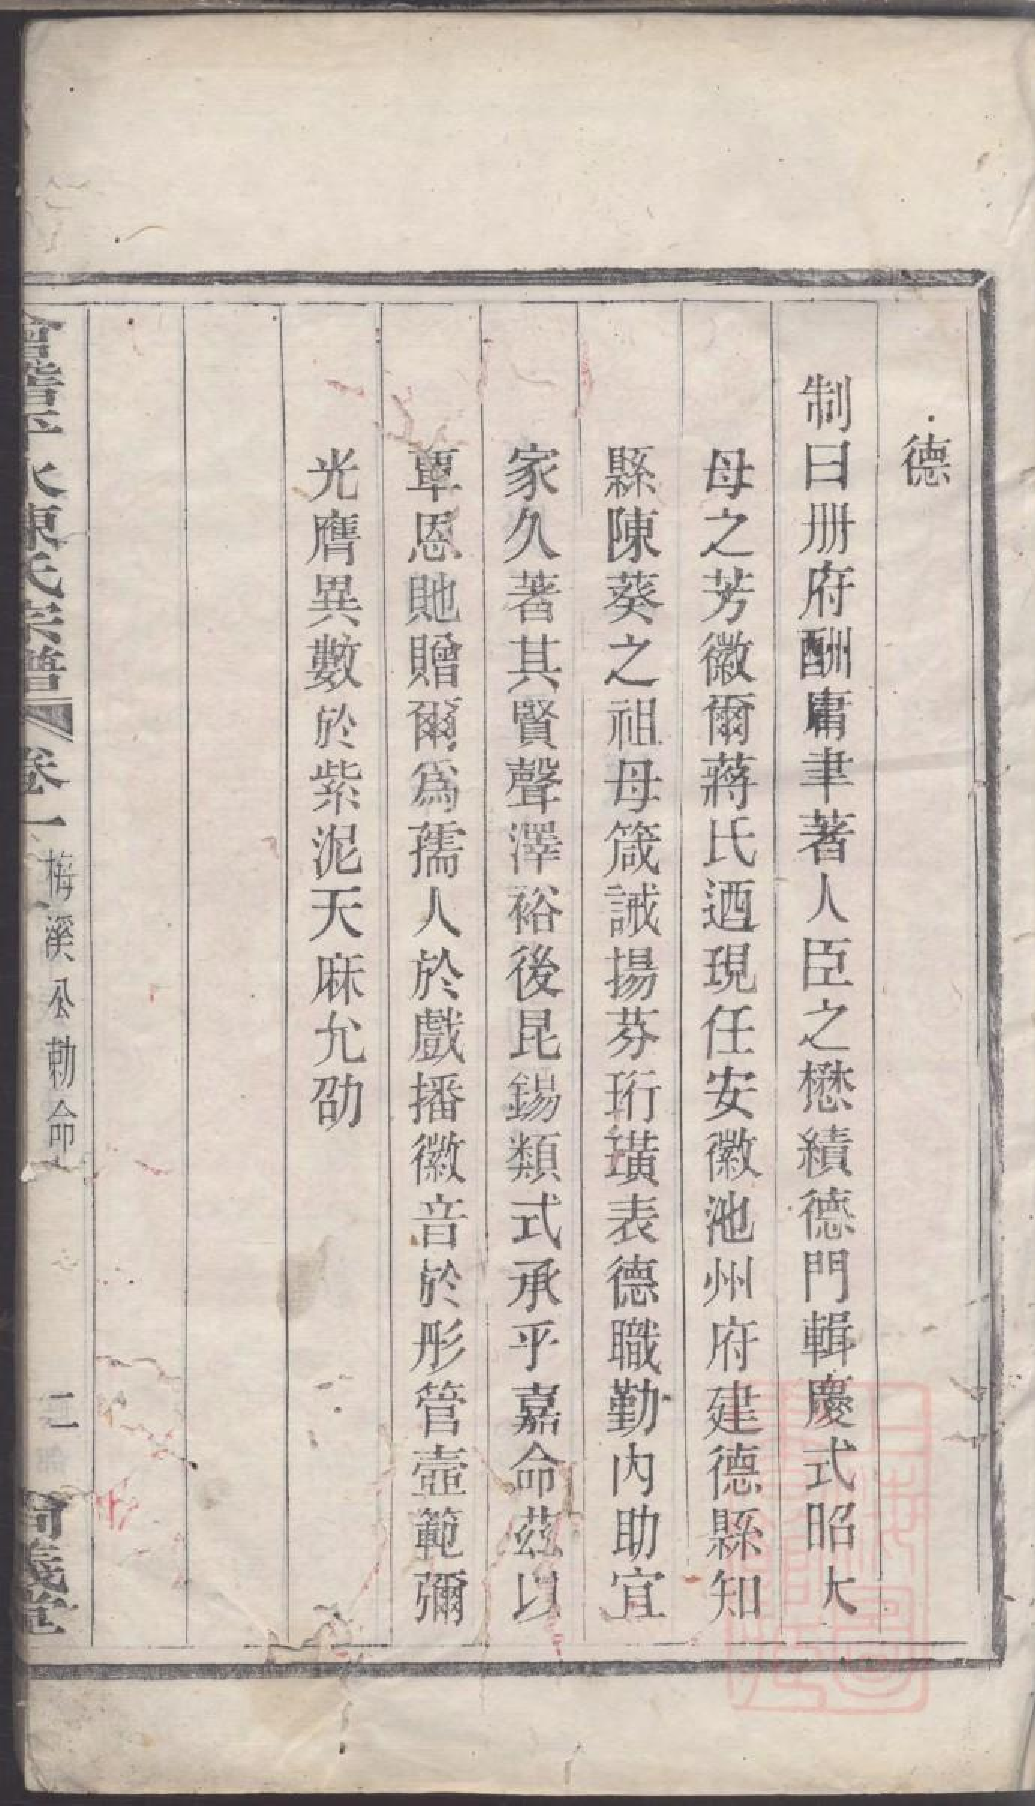 德
制曰册府酬庸聿著人臣之懋績德門輯慶式昭大
母之芳徽爾蔣氏迺現任安徽池州府建德縣知
縣陳葵之祖母箴誡揚芬珩璜表德職勤內助宜
家久著其賢聲澤裕後昆錫類式承乎嘉命茲以
覃恩貤贈爾爲孺人於戲播徽音於彤管壼範彌
光膺異數於紫泥天庥允劭
會稽平水陳氏宗譜 卷一 梅溪公勅命 二 尚義堂